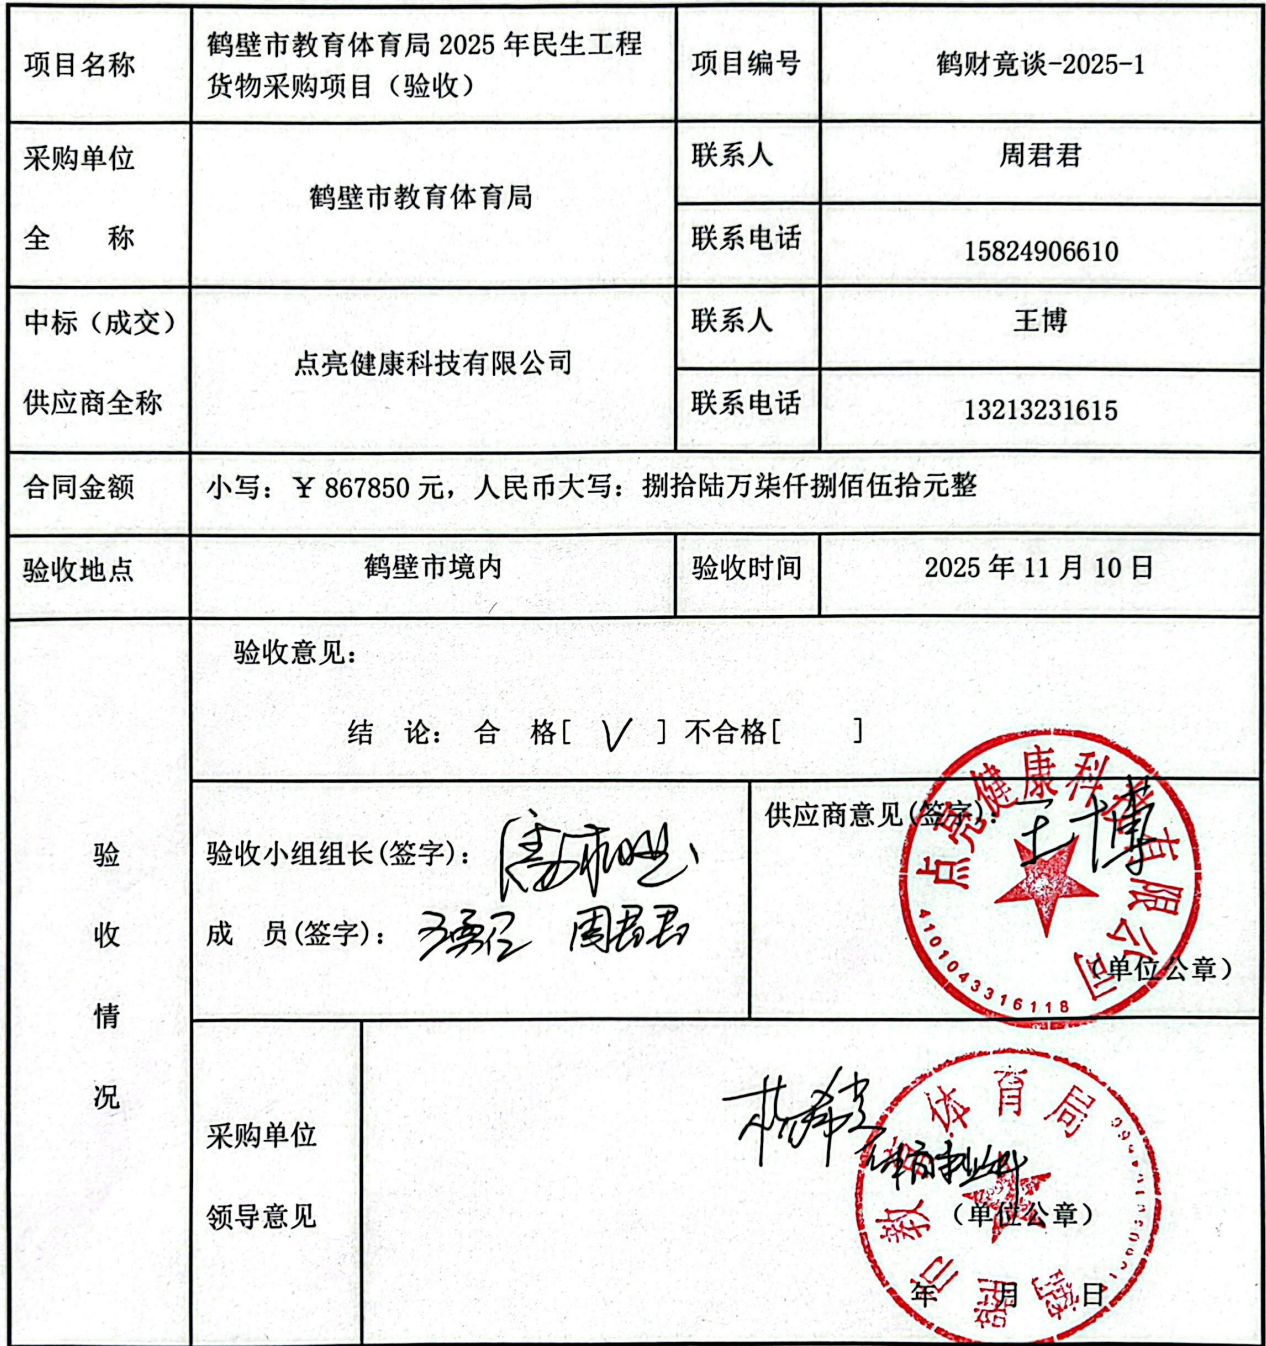 项目名称
鹤壁市教育体育局 2025 年民生工程
货物采购项目（验收）
项目编号
鹤财竟谈-2025-1
采购单位
全 称
鹤壁市教育体育局
联系人
周君君
联系电话
15824906610
中标（成交）
供应商全称
点亮健康科技有限公司
联系人
王博
联系电话
13213231615
合同金额
小写：￥ 867850 元，人民币大写：捌拾陆万柒仟捌佰伍拾元整
验收地点
鹤壁市境内
验收时间
2025 年 11 月 10 日
验
收
情
况
验收意见：
结 论： 合 格[ √ ] 不合格[ ]
验收小组组长(签字)：
成 员(签字)： 周君君
供应商意见(签字)： 王博
点亮健康科技有限公司
4101043316118
（单位公章）
采购单位
领导意见
鹤壁市教育体育局
（单位公章）
年 月 日